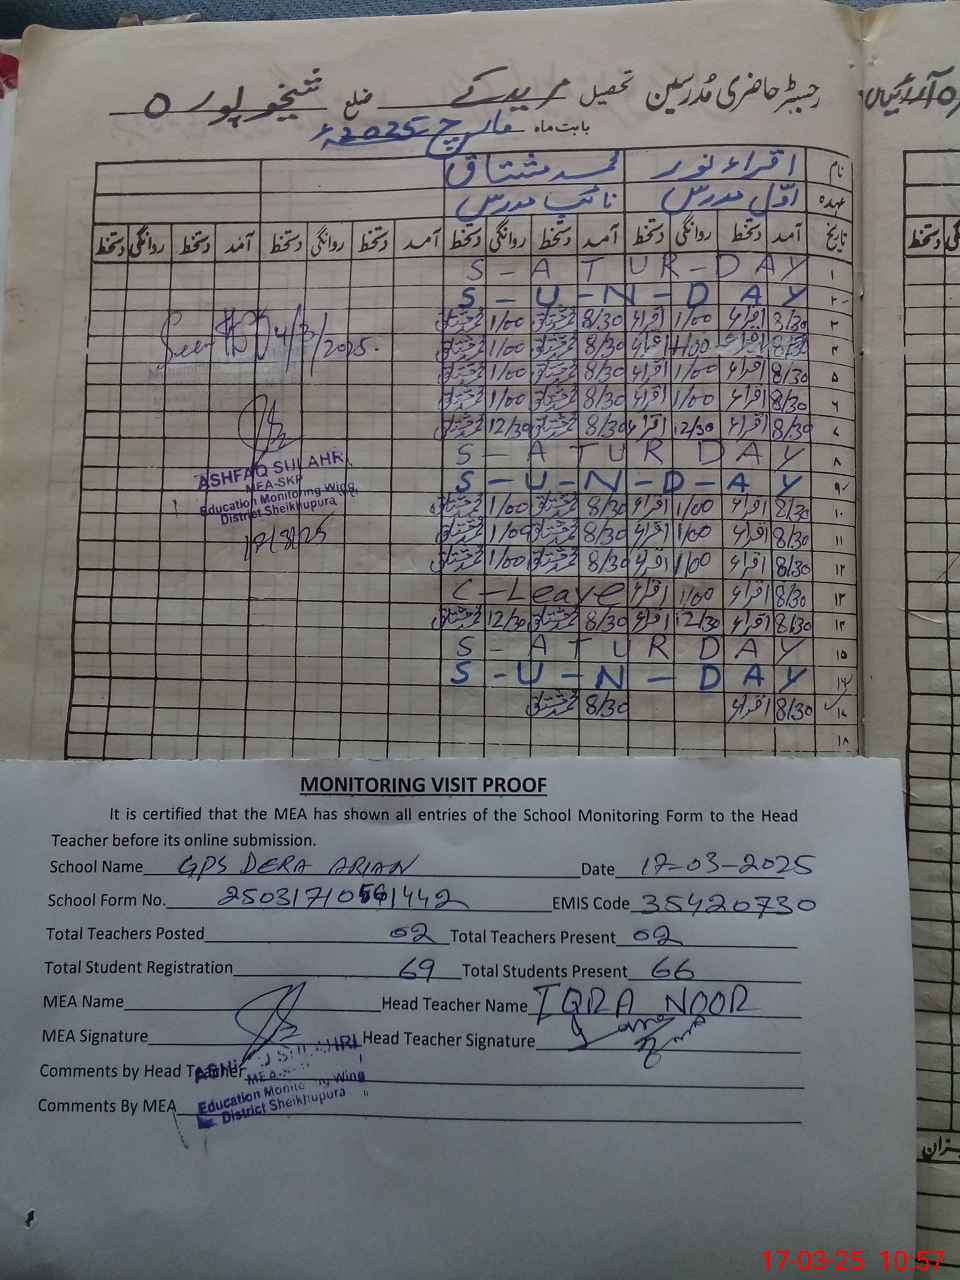 رجسٹر حاضری مُدرسین تحصیل مریدکے ضلع شیخوپورہ
بابت ماہ مارچ 2025ء
نام اقراء نور محمد مشتاق
عہدہ اوّل مدرس نائب مدرس
تاریخ آمد دستخط روانگی دستخط آمد دستخط روانگی دستخط آمد دستخط روانگی دستخط آمد دستخط روانگی دستخط
۱ S-ATUR-DAY
۲ S-U-N-DAY
۳ 8/30 اقراء 1/00 اقراء 8/30 محمد مشتاق 1/00 محمد مشتاق
۴ 8/30 اقراء 1/00 اقراء 8/30 محمد مشتاق 1/00 محمد مشتاق
۵ 8/30 اقراء 1/00 اقراء 8/30 محمد مشتاق 1/00 محمد مشتاق
۶ 8/30 اقراء 1/00 اقراء 8/30 محمد مشتاق 1/00 محمد مشتاق
۷ 8/30 اقراء 12/30 اقراء 8/30 محمد مشتاق 12/30 محمد مشتاق
۸ S-ATUR DAY
۹ S-U-N-D-AY
۱۰ 8/30 اقراء 1/00 اقراء 8/30 محمد مشتاق 1/00 محمد مشتاق
۱۱ 8/30 اقراء 1/00 اقراء 8/30 محمد مشتاق 1/00 محمد مشتاق
۱۲ 8/30 اقراء 1/00 اقراء 8/30 محمد مشتاق 1/00 محمد مشتاق
۱۳ 8/30 اقراء 1/00 اقراء C-Leave
۱۴ 8/30 اقراء 12/30 اقراء 8/30 محمد مشتاق 12/30 محمد مشتاق
۱۵ S-ATUR DAY
۱۶ S-U-N-DAY
۱۷ 8/30 اقراء 8/30 محمد مشتاق
۱۸
Seen 04/3/2025.
ASHFAQ SULAHRI
MEA-SKP
Education Monitoring Wing
District Sheikhupura
17/3/25
دستخط
میزان
MONITORING VISIT PROOF
It is certified that the MEA has shown all entries of the School Monitoring Form to the Head
Teacher before its online submission.
School Name GPS DERA ARIAN Date 17-03-2025
School Form No. EMIS Code 35420730
Total Teachers Posted 02 Total Teachers Present 02
Total Student Registration 69 Total Students Present 66
MEA Name Head Teacher Name IQRA NOOR
MEA Signature Head Teacher Signature
Comments by Head Teacher
ASHFAQ SULAHRI
MEA-SKP
Education Monitoring Wing
District Sheikhupura
Comments By MEA
17-03-25 10:57